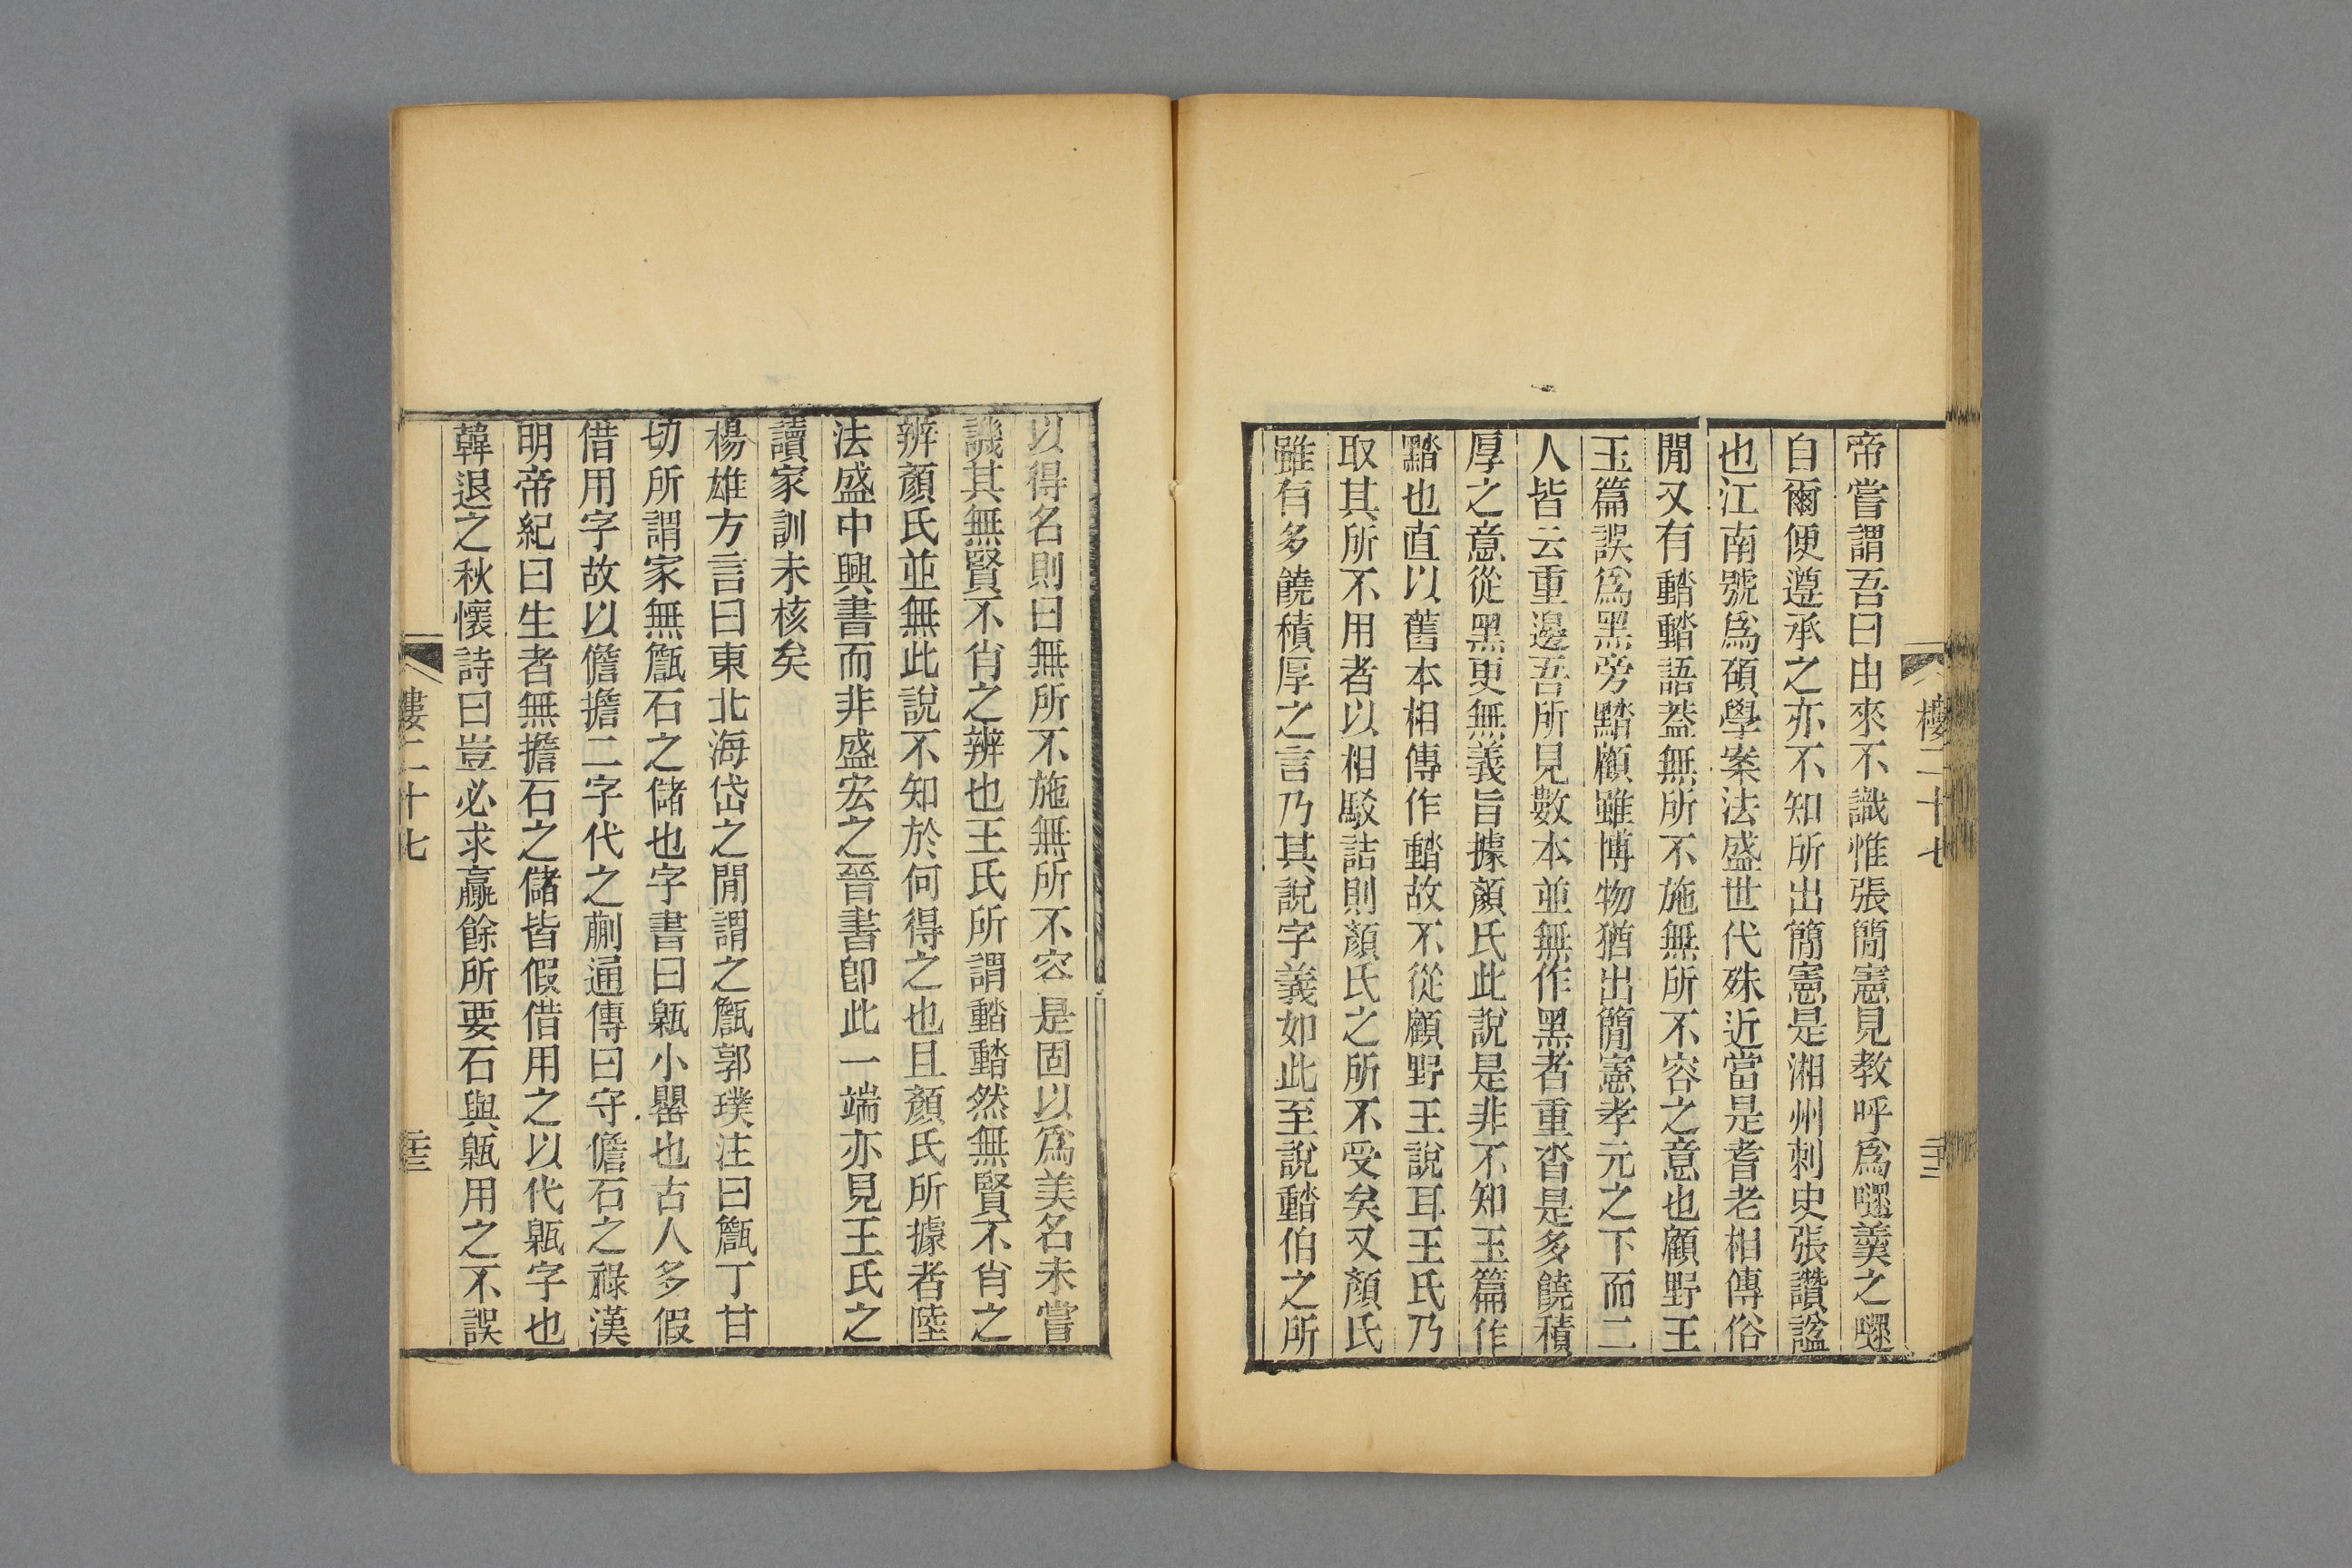 帝嘗謂吾曰由來不識惟張簡憲見教呼爲㘁羹之㘁
自爾便遵承之亦不知所出簡憲是湘州刺史張讚諡
也江南號爲碩學案法盛世代殊近當是耆老相傳俗
閒又有䵬䵬語葢無所不施無所不容之意也顧野王
玉篇誤爲黑旁䵬顧雖博物猶出簡憲孝元之下而二
人皆云重邊吾所見數本並無作黑者重沓是多饒積
厚之意從黑更無義旨據顏氏此說是非不知玉篇作
䵬也直以舊本相傳作䵬故不從顧野王說耳王氏乃
取其所不用者以相駁詰則顏氏之所不受矣又顏氏
雖有多饒積厚之言乃其說字義如此至說䵬伯之所
以得名則曰無所不施無所不容是固以爲美名未嘗
譏其無賢不肖之辨也王氏所謂䵬䵬然無賢不肖之
辨顏氏並無此說不知於何得之也且顏氏所據者陸
法盛中興書而非盛宏之晉書卽此一端亦見王氏之
讀家訓未核矣
楊雄方言曰東北海岱之閒謂之甔郭璞注曰甔丁甘
切所謂家無甔石之儲也字書曰㽉小罌也古人多假
借用字故以儋擔二字代之蒯通傳曰守儋石之祿漢
明帝紀曰生者無擔石之儲皆假借用之以代㽉字也
韓退之秋懷詩曰豈必求贏餘所要石與㽉用之不誤
樓二十七